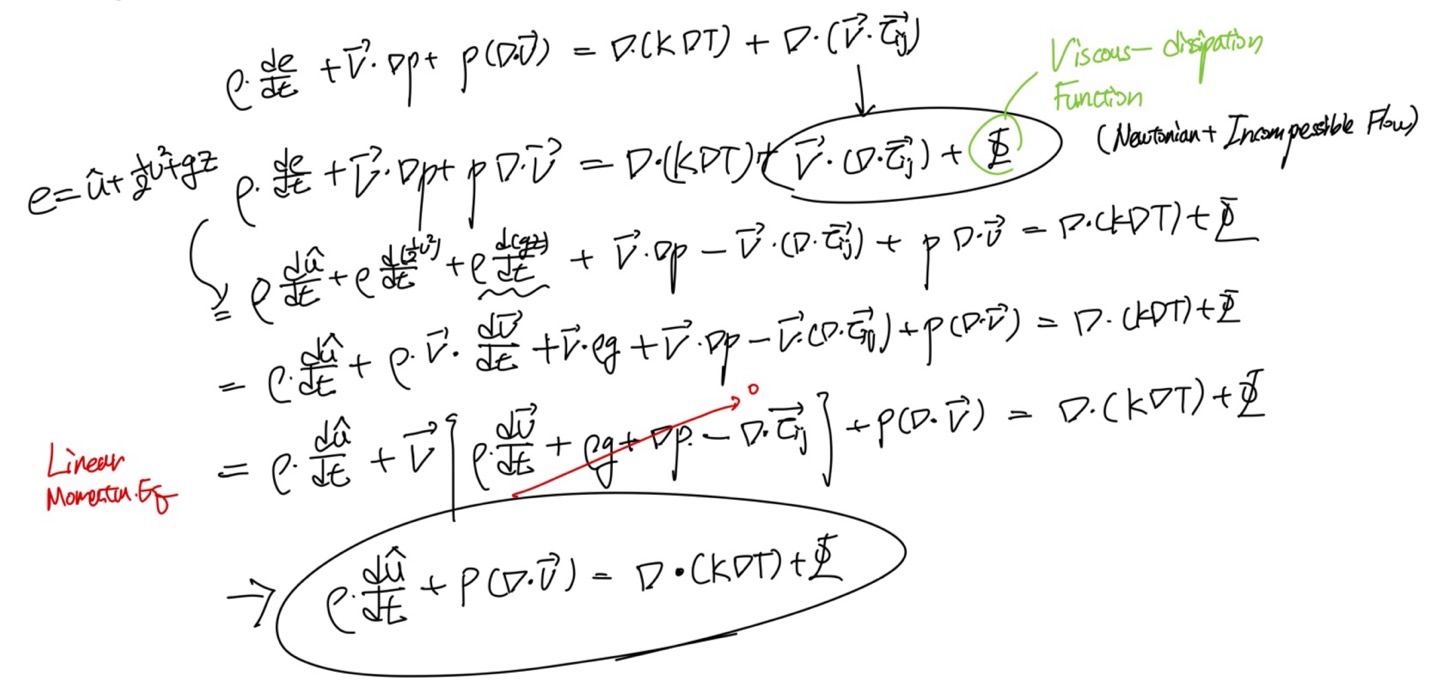 ρ·de/dt + V⃗·∇p + p(∇·v⃗) = ∇·(k∇T) + ∇·(V⃗·τ⃗ij)
Viscous-dissipation
Function
(Newtonian + Incompessible Flow)
e = û + ½v² + gz
ρ·de/dt + V⃗·∇p + p∇·V⃗ = ∇·(k∇T) + V⃗·(∇·τ⃗ij) + Φ
= ρ dû/dt + ρ d(½v²)/dt + ρ d(gz)/dt + V⃗·∇p − V⃗·(∇·τ⃗ij) + p∇·v⃗ = ∇·(k∇T) + Φ
= ρ·dû/dt + ρ·V⃗·dv⃗/dt + V⃗·ρg + V⃗·∇p − V⃗·(∇·τ⃗ij) + p(∇·V⃗) = ∇·(k∇T) + Φ
Linear
Momentum.Eq
= ρ·dû/dt + V⃗[ρ·dv⃗/dt + ρg + ∇p − ∇·τ⃗ij] + p(∇·V⃗) = ∇·(k∇T) + Φ
0
→ ρ·dû/dt + p(∇·V⃗) = ∇·(k∇T) + Φ